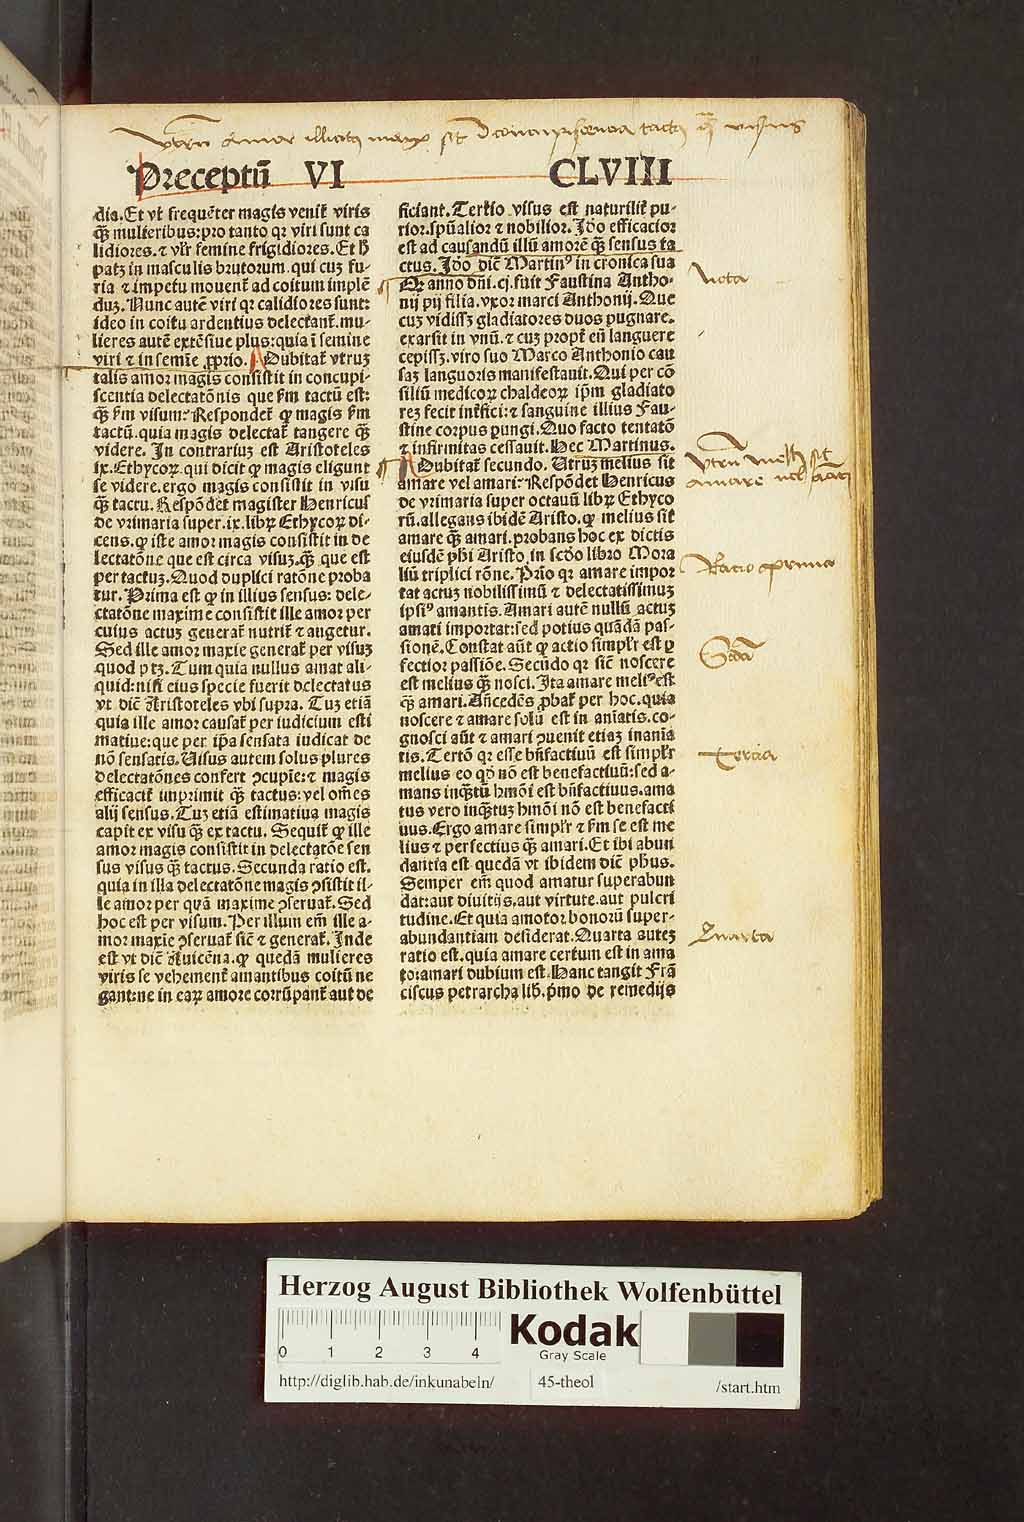 Utrum amor illicitus magis sit
Preceptū VI CLVIII
dia. Et vt frequēter magis venit̄ viris
q̄ꝫ mulieribus: pro tanto qꝛ viri sunt ca
lidiores. ⁊ vl̓r femine frigidiores. Et h̓
patꝫ in masculis brutorum. qui cuꝫ fu-
ria ⁊ impetu mouent̄ ad coitum implē
duꝫ. Nunc autē viri qꝛ calidiores sunt:
ideo in coitu ardentius delectant̄. mu-
lieres autē extēsiue plus: quia ī semine
viri ⁊ in semīe ꝓprio. Dubitat̄ vtruꝫ
talis amor magis consistit in concupi-
scentia delectatōnis que ẜm tactū est:
q̄ꝫ ẜm visum? Respondet̄ ꝙ magis ẜm
tactū. quia magis delectat̄ tangere q̄ꝫ
videre. In contrariuꝫ est Aristoteles
ix. Ethycoꝝ. qui dicit ꝙ magis eligunt
se videre. ergo magis consistit in visu
q̄ꝫ tactu. Respōdet̄ magister Henricus
de vrimaria super. ix. libꝝ Ethycoꝝ di-
cens. ꝙ iste amor magis consistit in de
lectatōne que est circa visuꝫ. q̄ꝫ que est
per tactuꝫ. Quod duplici ratōne proba
tur. Prima est ꝙ in illius sensus: dele-
ctatōne maxime consistit ille amor per
cuius actuꝫ generat̄ nutrit̄ ⁊ augetur.
Sed ille amor maxīe generat̄ per visuꝫ
quod ptꝫ. Tum quia nullus amat ali-
quid: nisi eius specie fuerit delectatus
vt dic̄ Aristoteles vbi supra. Tuꝫ etiā
quia ille amor causat̄ per iudicium esti
matiue: que per ip̄a sensata iudicat de
nō sensatis. Uisus autem solus plures
delectatōnes confert ꝯcupīe: ⁊ magis
efficacit̄ imprimit q̄ꝫ tactus: vel om̄es
alij sensus. Tuꝫ etiā estimatiua magis
capit ex visu q̄ꝫ ex tactu. Sequit̄ ꝙ ille
amor magis consistit in delectatōe sen
sus visus q̄ꝫ tactus. Secunda ratio est.
quia in illa delectatōne magis ꝯsistit il-
le amor per quā maxime ꝯseruat̄. Sed
hoc est per visum. Per illum em̄ ille a-
mor maxīe ꝯseruat̄ sic̄ ⁊ generat̄. Inde
est vt dic̄ Auicēna. ꝙ quedā mulieres
viris se vehement̄ amantibus coitū ne
gant: ne in eaꝝ amore corrūpant̄ aut de
ficiant. Tertio visus est naturilit̄ pu-
rior. spūalior ⁊ nobilior. Jdo efficacior
est ad causandū illū amorē q̄ꝫ sensus ta
ctus. Jdo dic̄ Martinꝰ in cronica sua
Qꝛ anno dn̄i. cj. fuit Faustina Antho-
nij pij filia. vxor marci Anthonij. Que
cuꝫ vidissꝫ gladiatores duos pugnare.
exarsit in vnū. ⁊ cuꝫ propt̄ eū languere
cepissꝫ. viro suo Marco Anthonio cau
saꝫ languoris manifestauit. Qui per cō
siliū medicoꝝ chaldeoꝝ ip̄m gladiato
reꝫ fecit int̄fici: ⁊ sanguine illius Fau-
stine corpus ꝑungi. Quo facto tentatō
⁊ infirmitas cessauit. Hec Martinus.
Dubitat̄ secundo. Utruꝫ melius sit
amare vel amari? Respōdet Henricus
de vrimaria super octauū libꝝ Ethyco
rū. allegans ibidē Aristo. ꝙ melius sit
amare q̄ꝫ amari. probans hoc ex dictis
eiusdē ph̓i Aristo. in scd̓o libro Mora
liū triplici rōne. Prīo qꝛ amare impor
tat actuꝫ nobilissimū ⁊ delectatissimuꝫ
ipsiꝰ amantis. Amari autē nullū actuꝫ
amati importat: sed potius quādā pas-
sionē. Constat aūt ꝙ actio simpl̓r est ꝑ
fectior passiōe. Secūdo qꝛ sic̄ noscere
est melius q̄ꝫ nosci. Jta amare meliꝰ est
q̄ꝫ amari. An̄cedēs ꝓbat̄ per hoc. quia
noscere ⁊ amare solū est in aniatis. co-
gnosci aūt ⁊ amari ꝯuenit etiaꝫ inania
tis. Tertō qꝛ esse bn̄factiuū est simpl̓r
melius eo qd̓ nō est benefactiuū: sed a-
mans inq̄tū hm̄oi est bn̄factiuus. ama
tus vero inq̄tuꝫ hm̄oi nō est benefacti
uus. Ergo amare simpl̓r ⁊ ẜm se est me
lius ⁊ perfectius q̄ꝫ amari. Et ibi abun
dantia est quedā vt ibidem dic̄ ph̓us.
Semper em̄ quod amatur superabun
dat: aut diuitijs. aut virtute. aut pulcri
tudine. Et quia amotor bonorū super-
abundantiam desiderat. Quarta auteꝫ
ratio est. quia amare certum est in ama
to: amari dubium est. Hanc tangit Frā
ciscus petrarcha lib. p̄mo de remedijs
Nota
Utrum meliꝰ sit
amare vel amari
Ratio prima
Scd̓a
Tercia
Quarta
Herzog August Bibliothek Wolfenbüttel
0 1 2 3 4
Kodak
Gray Scale
http://diglib.hab.de/inkunabeln/ 45-theol /start.htm